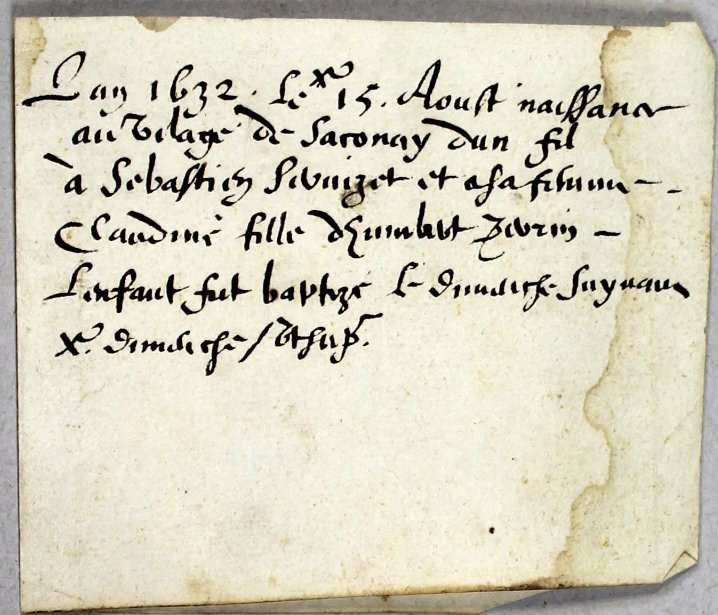 Lan 1632. Le 15. Aoust naissance
au vilage de Saconay dun fil
à Sebastien et a sa femme
Claudine fille dhumbert
Lenfant fut baptizé le dimanche suyvant
dimanche